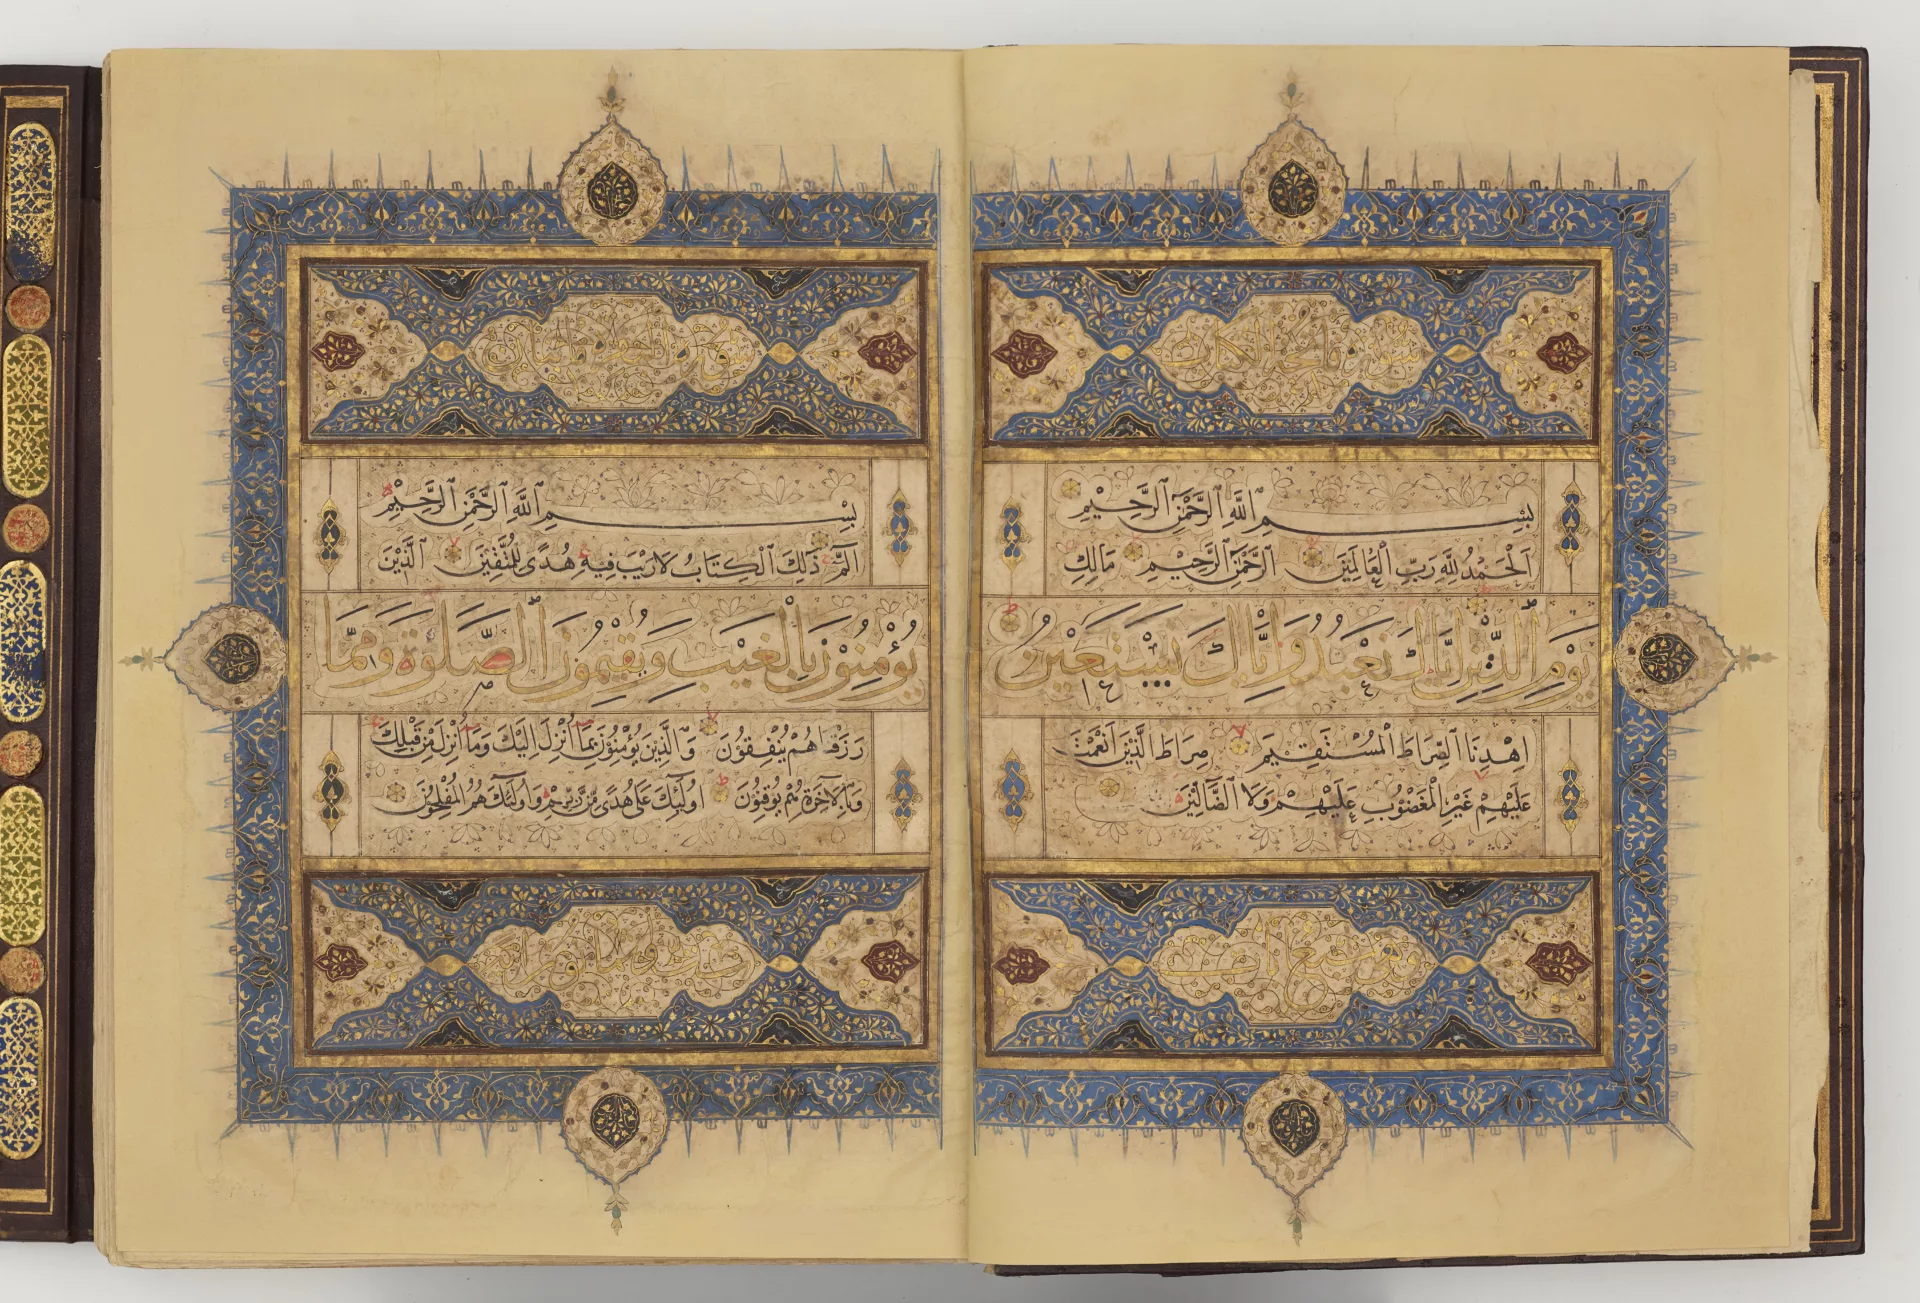 سورة فاتحة الكتاب
بِسْمِ اللَّهِ الرَّحْمَنِ الرَّحِيْمِ
اَلْحَمْدُ لِلَّهِ رَبِّ الْعَالَمِيْنَ الرَّحْمَنِ الرَّحِيْمِ مَالِكِ
يَوْمِ الدِّيْنِ اِيَّاكَ نَعْبُدُ وَاِيَّاكَ نَسْتَعِيْنُ
اِهْدِنَا الصِّرَاطَ الْمُسْتَقِيْمَ صِرَاطَ الَّذِيْنَ اَنْعَمْتَ
عَلَيْهِمْ غَيْرِ الْمَغْضُوْبِ عَلَيْهِمْ وَلَا الضَّالِّيْنَ
بِسْمِ اللَّهِ الرَّحْمَنِ الرَّحِيْمِ
الٓمٓ ذَلِكَ الْكِتَابُ لَا رَيْبَ فِيهِ هُدًى لِلْمُتَّقِيْنَ الَّذِيْنَ
يُؤْمِنُوْنَ بِالْغَيْبِ وَيُقِيْمُوْنَ الصَّلَوٰةَ وَمِمَّا
رَزَقْنَاهُمْ يُنْفِقُوْنَ وَالَّذِيْنَ يُؤْمِنُوْنَ بِمَا اُنْزِلَ اِلَيْكَ وَمَا اُنْزِلَ مِنْ قَبْلِكَ
وَبِالْاٰخِرَةِ هُمْ يُوْقِنُوْنَ اُولٰئِكَ عَلَى هُدًى مِّنْ رَبِّهِمْ وَاُولٰئِكَ هُمُ الْمُفْلِحُوْنَ